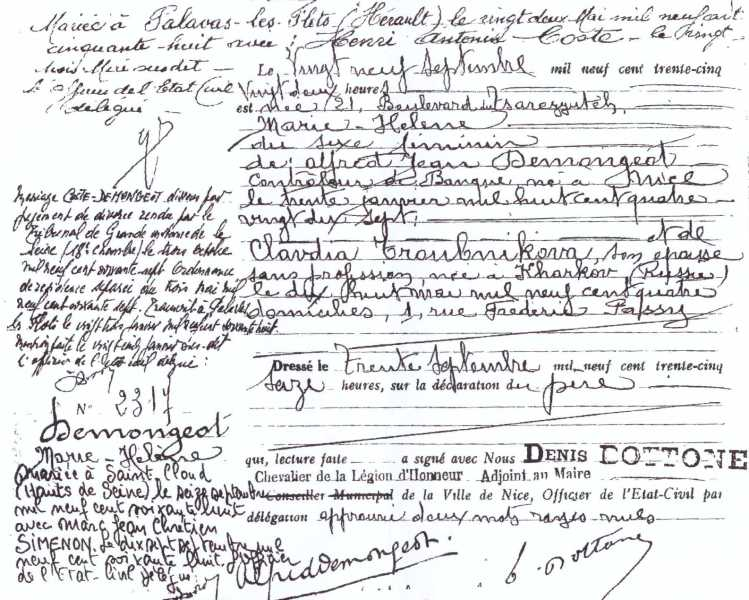 Mariée à Palavas-les-Flots (Hérault) le vingt deux Mai mil neuf cent
cinquante-huit avec : Henri Antonin Coste - le vingt-
trois Mai susdit -
L'officier de l'Etat Civil
délégué -
Mariage COSTE-DEMONGEOT dissous par
jugement de divorce rendu par le
Tribunal de Grande instance de la
Seine (18e chambre) le trois octobre
mil neuf cent soixante sept. Ordonnance
de résidence séparée du trois mai mil
neuf cent soixante sept. Transcrit à Palavas
les Flots le vingt janvier mil neuf cent soixante huit.
Mention faite le vingt janvier
L'officier de l'état civil délégué :
N° 2317
Demongeot
Marie-Helene
Mariée à Saint Cloud
(Hauts de Seine) le seize septembre
mil neuf cent soixante huit
avec Marc Jean Chrétien
SIMENON. Le dix sept septembre mil
neuf cent soixante huit. L'officier
de l'Etat-Civil délégué
Le Vingt neuf Septembre mil neuf cent trente-cinq
Vingt deux heures
est née, 21, Boulevard Tzarewitch,
Marie-Helene
du sexe féminin
de Alfred Jean Demongeot
Contrôleur de Banque né à Nice
le trente janvier mil huit cent quatre
vingt dix sept, et de
Claudia Troubnikova, son épouse
sans profession née à Kharkov (Russie)
le dix huit mai mil neuf cent quatre
domiciliés, 1, rue Frédéric Passy
Dressé le trente Septembre mil neuf cent trente-cinq
seize heures, sur la déclaration du père
qui, lecture faite a signé avec Nous DENIS COTTONE
Chevalier de la Légion d'Honneur Adjoint au Maire
Conseiller Municipal de la Ville de Nice, Officier de l'Etat-Civil par
délégation approuvé deux mots rayés nuls
Alfred Demongeot.
D. Cottone